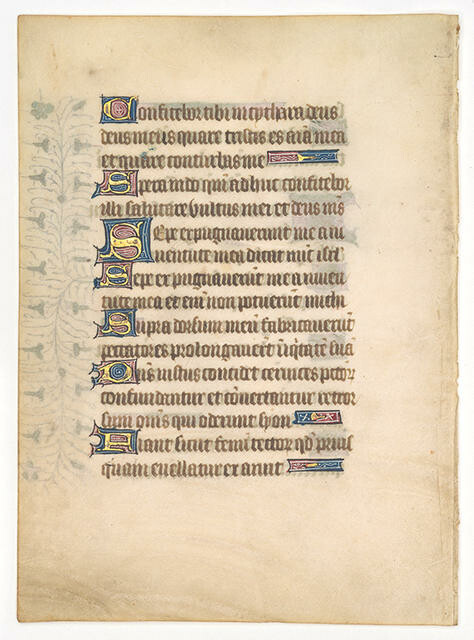 Confitebor tibi in cythara deus
deus meus quare tristis es aīa mea
et quare conturbas me
Spera in deo qm̄ adhuc confitebor
illi salutare vultus mei et deus m̄s
Sepe expugnaverunt me a iu
uentute mea dicat nūc isrl̄
Sepe expugnaverūt me a iuven
tute mea et em̄ non potuerūt michi
Supra dorsum meū fabricaverūt
peccatores prolongaverūt iniq̄tatē suā
Dn̄s iustus concidet cervices pctōr
confundentur et cōvertantur retror
sum om̄s qui oderunt syon
Fiant sicut fenū tector qd̄ prius
quam evellatur exaruit